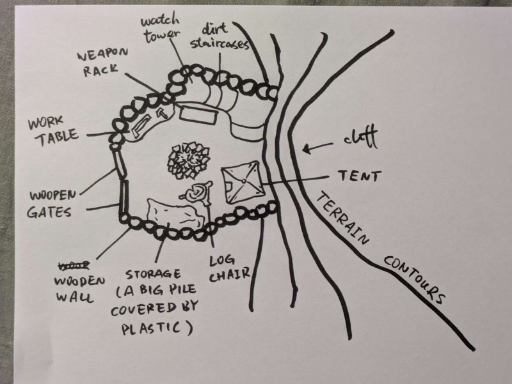 watch
tower
dirt
staircases
WEAPON
RACK
WORK
TABLE
cleft
TENT
WOODEN
GATES
TERRAIN CONTOURS
WOODEN
WALL
STORAGE
(A BIG PILE
COVERED BY
PLASTIC)
LOG
CHAIR